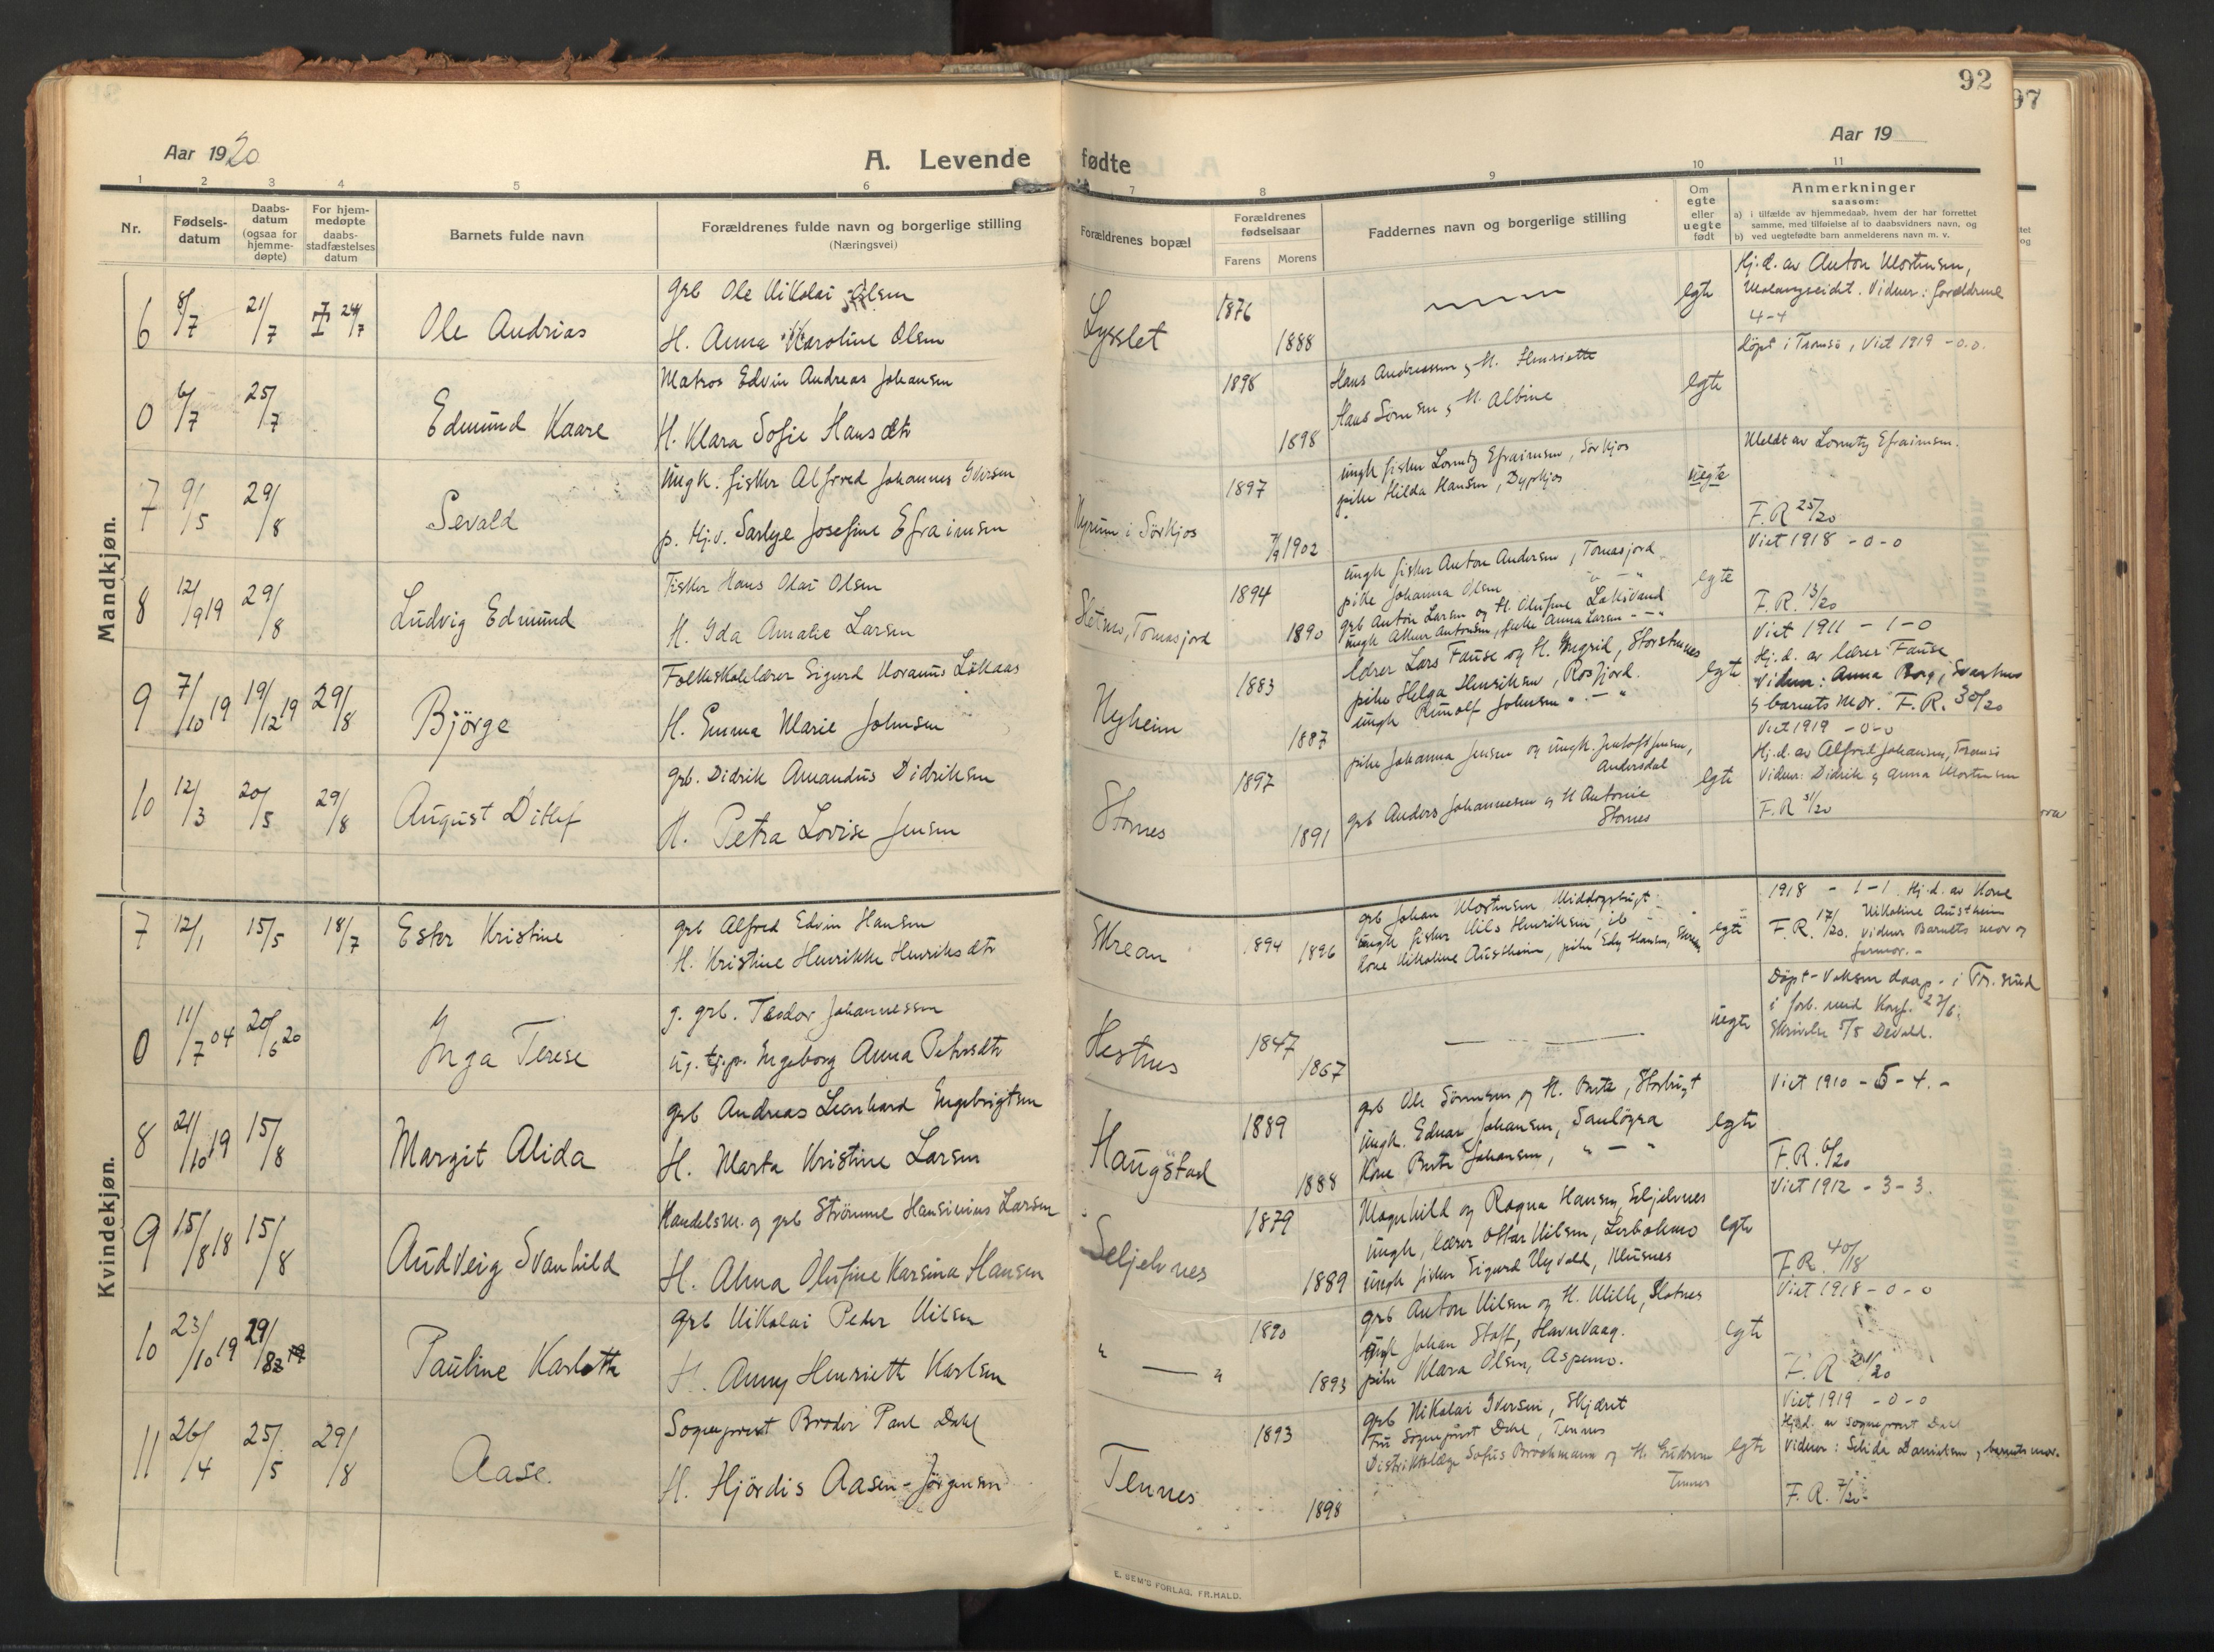 92
97
Aar 1920
A. Levende fødte
Aar 19
1 2 3 4 5 6 7 8 9 10 11
Nr.
Fødsels-
datum
Daabs-
datum
(ogsaa for
hjemme-
døpte)
For hjem-
medøpte
daabs-
stadfæstelses
datum
Barnets fulde navn
Forældrenes fulde navn og borgerlige stilling
(Næringsvei)
Forældrenes bopæl
Forældrenes
fødselsaar
Farens Morens
Faddernes navn og borgerlige stilling
Om
egte
eller
uegte
født
Anmerkninger
saasom:
a) i tilfælde av hjemmedaab, hvem der har forrettet
samme, med tilføielse af to daabsvidners navn, og
b) ved uegtefødte barn anmelderens navn m. v.
Mandkjøn.
6 8/7 21/7 24/7 Ole Andrias
Grb Ole Nikolai Olsen
H. Anna Karoline Olsen
Lysslet 1876 1888 egte
Hj.d. av Anton Mortensen,
Malangseidet. Vidner: forældrene
4-4
0 6/7 25/7 Edmund Kaare
Matros Edvin Andreas Johansen
H. Klara Sofie Hansdtr
1898 1898
Hans Andreassen & H. Henriette
Hans Sörensen & H. Albine
egte
döpt i Tromsö, Viet 1919 -0.0.
7 9/5 29/8 Sevald
Ungk. fisker Alfred Johannes Iversen
p. Hj.v. Sarlye Josefine Efraimsen
Nyrum i Sörkjos 1897 1902
ungk fisker Lorentz Efraimsen, Sörkjos
pike Hilda Hansen, Dypkjos
uegte
Meldt av Lorentz Efraimsen.
F.R 25/20
8 12/9 19 29/8 Ludvig Edmund
Fisker Hans Olai Olsen
H. Ida Amalie Larsen
Sletmo, Tomasjord 1894 1890
ungk fisker Anton Andersen, Tomasjord
pike Johanna Olsen " — "
grb Anton Larsen og H. Olufine Laksvand
ungk Atkur Antonsen, pike Anna Larsen - " -
egte
Viet 1918 -0-0
F.R. 13/20
9 7/10 19 19/12 19 29/8 Björge
Folkeskolelærer Sigurd Noranus Lökaas
H. Emma Marie Johnsen
Nyheim 1883 1887
lærer Lars Fause og H. Ingrid, Storstennes
pike Helga Henriksen, Rosfjord.
ungk Runolf Johnsen " — "
egte
Viet 1911 - 1-0
Hj.d. av lærer Fause
Vidner: Anna Borg, Svartnes
& barnets mor. F.R. 30/20
10 12/3 20/5 29/8 August Ditlef
grb. Didrik Amandus Didriksen
H. Petra Lovise Jensen
Stornes 1897 1891
pike Johanna Jensen og ungk. Jentoft Jensen,
Andersdal
grb Anders Johannesen & H Antonie
Stornes
egte
Viet 1919 -0-0
Hj.d. av Alfred Johansen, Tromsö
Vidner: Didrik & Anna Mortensen
F.R 31/20
Kvindekjøn.
7 12/1 15/5 18/7 Ester Kristine
grb Alfred Edvin Hansen
H. Kristine Henrikke Henriksdtr
Skrean 1894 1896
grb Johan Mortensen Middagsbugt
ungk fisker Nils Henriksen, ib
Kone Nikoline Austheim, pike Edy Hansen, Skrean
egte
1918 - 1-1 Hj.d. av Kone
Nikoline Austheim
F.R. 17/20. vidner Barnets mor og
farmor. -
0 11/7 04 20/6 20 Inga Terese
g. grb. Teodor Johannessen
ug. tj.p. Ingeborg Anna Petersdtr
Hestnes 1847 1867 uegte
Döpt - Voksen daap - i Tr. sund
i forb. med Konf. 27/6.
Skrivelse 5/8 Devold.
8 21/10 19 15/8 Margit Alida
grb Andreas Leonhard Engebrigtsen
H. Marta Kristine Larsen
Haugstad 1889 1888
grb Ole Sörensen og H. Berte, Storbugt
ungk. Edvar Johansen, Saulögra
Kone Berte Johansen, " — "
egte
Viet 1910 - 5-4. -
F.R. 6/20
9 15/8 18 15/8 Audveig Svanhild
Handelsm. og grb Strömme Hansinius Larsen
H. Alma Olufine Karsina Hansen
Seljelvnes 1879 1889
Magnhild og Ragna Hansen, Seljelvnes
ungk, lærer Ottar Nilsen, Lerbakmo
ungk fisker Sigurd Nyvold, Musnes
egte
Viet 1912 - 3-3.
F.R. 40/18
10 23/10 19 29/8 Pauline Karlotte
grb Nikolai Peder Nilsen
H. Anny Henriette Karlsen
" — " 1890 1893
grb Anton Nilsen og H. Mille, Slotnes
ungk Johan Stoff, Havnvaag.
pike Klara Olsen, Aspemo.
egte
Viet 1918 - 0 - 0
F.R 21/20
11 26/4 25/5 29/8 Aase.
Sogneprest Broder Paul Dahl
H. Hjördis Aasen-Jörgensen
Tennes 1893 1898
grb Nikolai Iversen, Skjæret
Fru Sogneprest Dahl, Tennes
Distriktslæge Sofus Brochmann og H. Gudrun
Tennes
egte
Viet 1919 -0-0
Hj.d. av sogneprest Dahl
Vidner: Selida Danielsen & barnets mor.
F.R. 7/20
E. SEM'S FORLAG, FR.HALD.